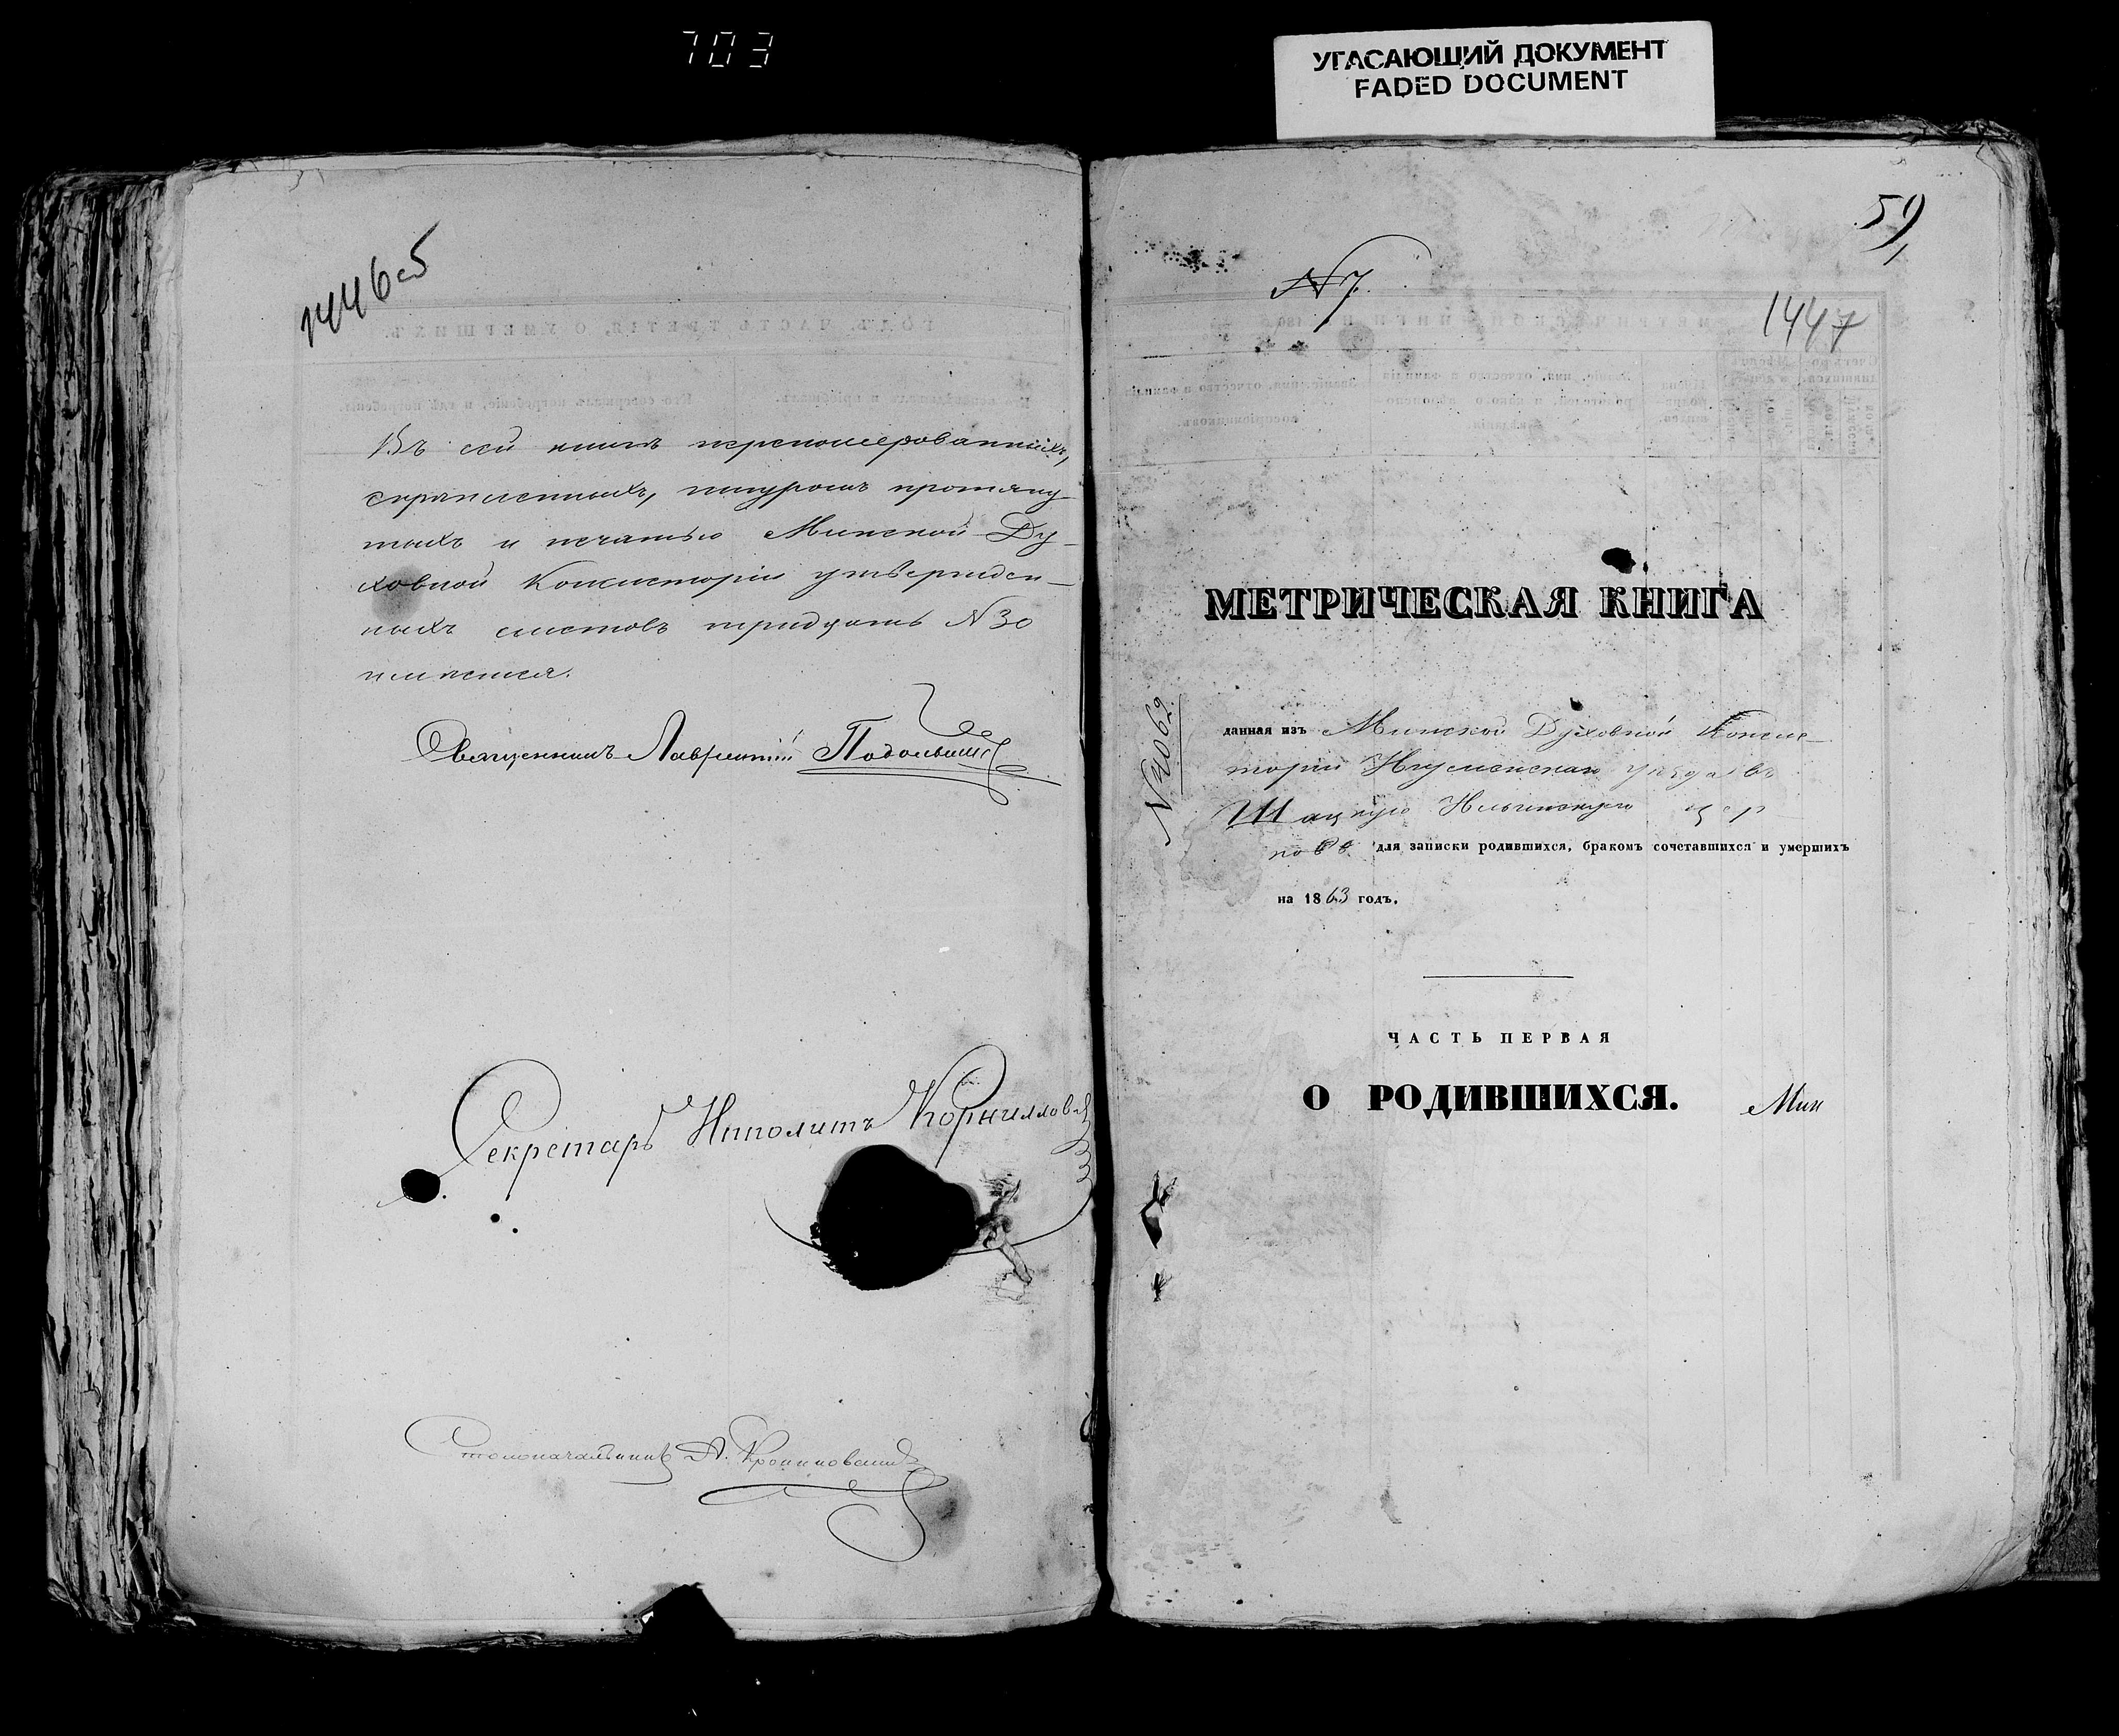 703
УГАСАЮЩИЙ ДОКУМЕНТ
FADED DOCUMENT
1446об
Въ сей книгѣ перенумерованныхъ,
скрѣпленныхъ, шнуромъ протяну-
тыхъ и печатью Минской Ду-
ховной Консисторіи утвержден-
ныхъ листовъ тридцать N 30
имѣется.
Священникъ Лаврентій
Секретарь Ипполитъ Корниллов
Столоначальникъ А.
N 7.
1447
МЕТРИЧЕСКАЯ КНИГА
N 4062.
данная изъ Минской Духовной Консис-
торіи Игуменскаго уѣзда въ
Шацкую Ильинскую цер
ковь для записки родившихся, бракомъ сочетавшихся и умершихъ
на 1863 годъ.
ЧАСТЬ ПЕРВАЯ
О РОДИВШИХСЯ.
Мин